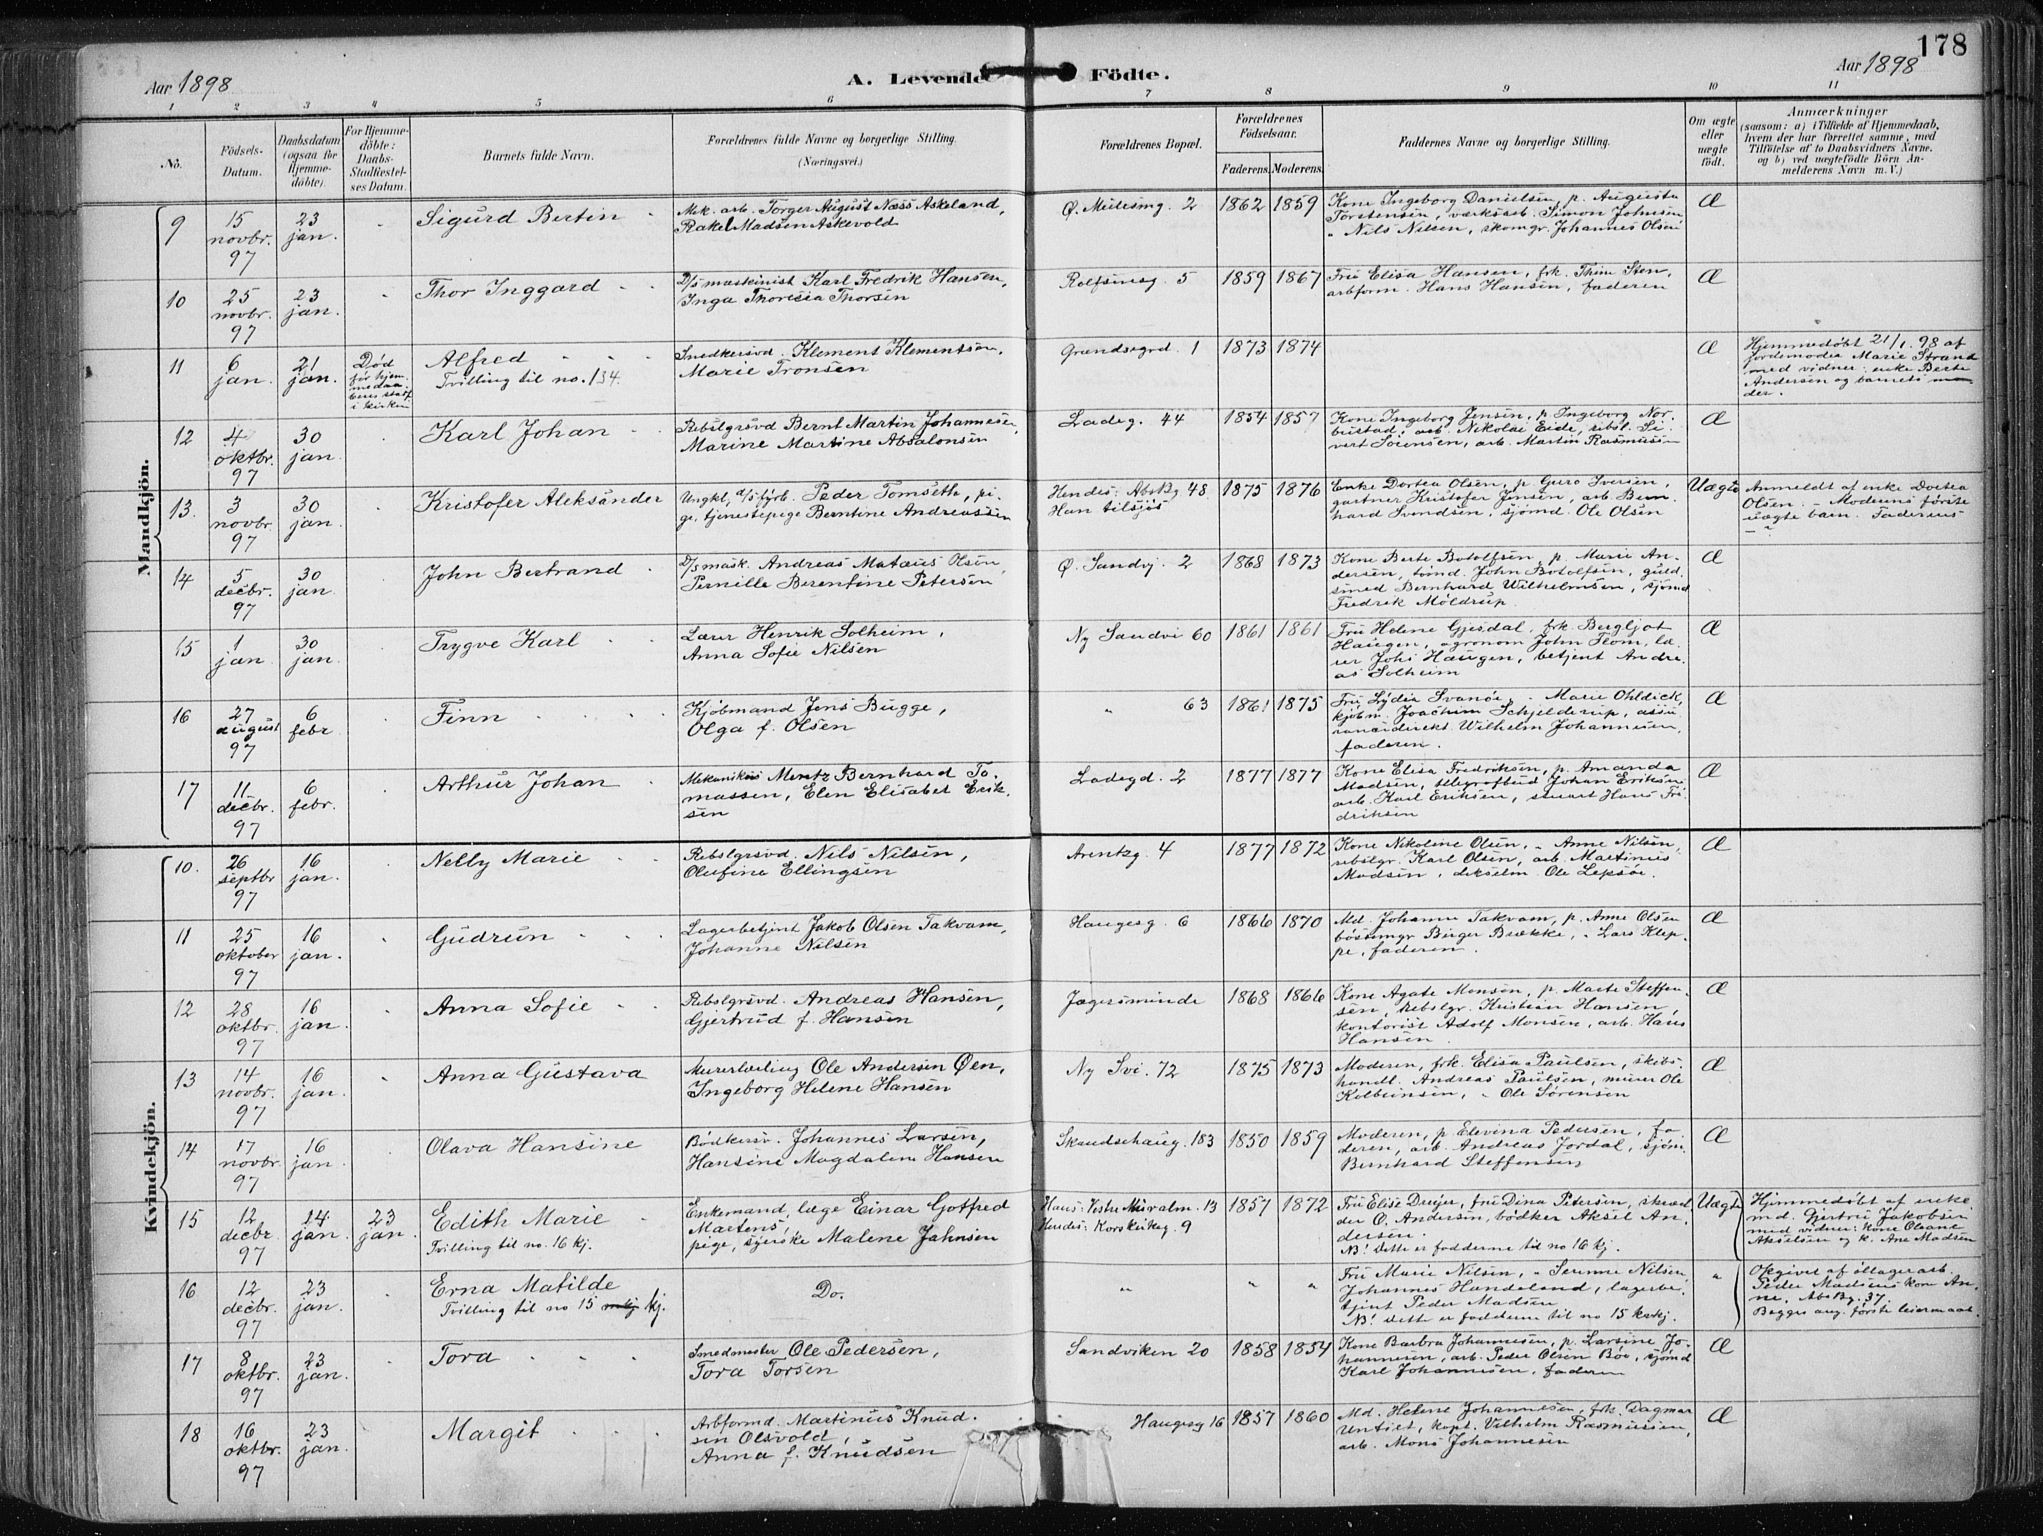 178
Aar 1898
A. Levende Födte.
Aar 1898
1 2 3 4 5 6 7 8 9 10 11
No.
Födsels-
Datum.
Daabsdatum
(ogsaa for
Hjemme-
döbte)
For Hjemme-
döbte:
Daabs-
Stadfæstel-
ses Datum.
Barnets fulde Navn.
Forældrenes fulde Navne og borgerlige Stilling.
(Næringsvei.)
Forældrenes Bopæl.
Forældrenes
Födselsaar.
Faderens. Moderens.
Faddernes Navne og borgerlige Stilling.
Om ægte
eller
uægte
født.
Anmærkninger
(saasom: a) i Tilfælde af Hjemmedaab,
hvem der har forrettet samme, med
Tilföielse af to Daabsvidners Navne,
og b) ved uægtefödte Börn An-
melderens Navn m. V.)
Mandkjön.
9
15
novbr.
97
23
jan.
Sigurd Bertin
Mek. arb. Torger August Næss Askeland,
Rakel Madsen Askevold
Ø. Mulesmg. 2
1862
1859
Kone Ingeborg Danielsen, p. Augusta
Torstensen, værksarb. Simon Johnsen,
" Nils Nilsen, skomgr. Johannes Olsen
Æ
10
25
novbr.
97
23
jan.
Thor Inggard
D/s maskinist Karl Fredrik Hansen,
Inga Thoresia Thorsen
Rolfsmsg. 5
1859
1867
Fru Elisa Hansen, frk. Thim Sten,
arbform. Hans Hansen, faderen
Æ
11
6
jan.
21
jan.
Død
før hjem-
medaa-
bens stadf.
i kirken
Alfred
Tvilling til no. 134.
Snedkersvd. Klement Klementsen,
Marie Tronsen
Grændsegrd. 1
1873
1874
Æ
Hjemmedøbt 21/1. 98 af
jordemoder Marie Strand
med vidner: enke Berte
Andersen og barnets mo-
der.
12
4
oktbr.
97
30
jan.
Karl Johan
Rebslgrsvd Bernt Martin Johannesen,
Marine Martine Absalonsen
Ladeg. 44
1854
1857
Kone Ingeborg Jensen, p. Ingeborg Nor-
bustad, arb. Nikolai Eide, rebsl. Si-
vert Sørensen, arb. Martin Rasmussen
Æ
13.
3
novbr.
97
30
jan.
Kristofer Aleksander
Ungkl, d/s fyrb. Peder Tomseth, pi-
ge, tjenestepige Berntine Andreassen
Hendes: Absbg 48
Han tilsjøs
1875
1876
Enke Dortea Olsen, p. Guro Iversen,
gartner Kristofer Jensen, arb. Bern-
hard Svendsen, sjømd. Ole Olsen
Uægte
Anmeldt af enke Dortea
Olsen. - Moderens første
uægte barn. Faderens
14
5
decbr.
97
30
jan.
John Bertrand
D/s mask. Andreas Matæus Olsen,
Pernille Berentine Petersen
Ø. Sandvj. 2
1868
1873
Kone Berte Botolfsen, p. Marie An-
dersen, tømd. John Botolfsen, guld-
smed Bernhard Wilhelmsen, sjømd
Fredrik Møldrup.
Æ
15
1
jan.
30
jan.
Trygve Karl
Lærer Henrik Solheim,
Anna Sofie Nilsen
Ny Sandvi 60
1861
1861
Fru Helene Gjesdal, frk. Bergljot
Haugen, agronom John Flom, læ-
rer Johs Haugen, betjent Andre-
as Solheim
Æ
16
27
august
97
6
febr
Finn
Kjøbmand Jens Bugge,
Olga f. Olsen
" 63
1861
1875
Fru Lydia Svanøe, " Marie Ohldick,
kjøbm. Joachim Schjelderup, assu-
ranседirekt. Wilhelm Johannesen,
faderen.
Æ
17
11
decbr.
97
6
febr.
Arthur Johan
Mekaniker Mentz Bernhard To-
massen, Elen Elisabet Erik-
sen
Ladegd. 2
1877
1877
Kone Elisa Fredriksen, p. Amanda
Madsen, telegrafbud Johan Eriksen
arb. Karl Eriksen, stuart Hans Fri-
driksen
Æ
Kvindekjön.
10.
26
septbr
97
16
jan.
Nelly Marie
Rebslgrsvd. Nils Nilsen,
Olufine Ellingsen
Arentzg. 4
1877
1872
Kone Nikoline Olsen, " Anne Nilsen,
rebslgr. Karl Olsen, arb. Martinus
Madsen, dekselm. Ole Lepsøe.
Æ
11
25
oktober
97
16
jan.
Gudrun
Lagerbetjent Jakob Olsen Takvam,
Johanne Nilsen
Haugesg. 6
1866
1870
Md. Johanne Takvam, p. Anne Olsen
bøssemgr Birger Brække, " Lars Klep-
pe, faderen.
Æ
12
28
oktbr.
97
16
jan.
Anna Sofie
Rebslgrsvd. Andreas Hansen,
Gjertrud f. Hansen
Jægersminde
1868
1866
Kone Agate Monsen, p. Marte Steffen-
sen, rebslgr. Kristian Hansen,
kontorist Adolf Monsen, arb. Hans
Hansen.
Æ
13
14
novbr.
97
16
jan.
Anna Gustava
Murerlærling Ole Andersen Øen,
Ingeborg Helene Hansen
Ny Svi. 72
1875
1873
Moderen, frk. Elisa Paulsen, skibs-
handl. Andreas Paulsen, murer Ole
Kolbeinsen, " Ole Sørensen
Æ
14
17
novbr.
97
16
jan.
Olava Hansine
Bødkersv. Johannes Larsen,
Hansine Magdalene Hansen
Skandsehaug. 183
1850
1859
Moderen, p. Elevina Pedersen, fa-
deren, arb. Andreas Jordal, sjøm.
Bernhard Steffensen
Æ
15
12
decbr.
97
14
jan.
23
jan.
Edith Marie
Tvilling til no. 16 kj.
Enkemand, læge Einar Gotfred
Martens,
pige, syerske Malene Jahnsen
Hans: Vestre Muralm. 13
Hendes: Korskirkeg. 9
1857
1872
Fru Elise Dreyer, fru Dina Petersen, skræd-
der O. Andersen, bødker Aksel An-
dersen.
NB! Dette er fadderne til no 16 kj.
Uægte
Hjemmedøbt af enke-
md. Gjertru Jakobsen
med vidner: kone Oleane
Akselsen og k. Ane Madsen
16
12
decbr.
97
23
jan.
Erna Matilde
Tvilling til no 15 kj.
Do.
"
"
"
Fru Marie Nilsen, " Serenne Nilsen,
Johannes Handeland, lagerbe-
tjent Peder Madsen
NB! Dette er fadderne til no 15 kvkj.
"
Opgivet af øllagerarb.
Peder Madsens kone An-
ne, Absbg. 37.
Begges ang. første leiermaal
17
8
oktbr.
97
23
jan.
Tora
Smedmester Ole Pedersen,
Tora Torsen
Sandviken 20
1858
1854
Kone Barbra Johannesen, p. Larsine Jo-
hannesen, arb. Peder Olsen Bøe, sjømd
Karl Johannesen, faderen
Æ
18
16
oktbr.
97
23
jan.
Margit
Arbformd. Martinus Knud-
sen Olsvold,
Anna f. Knudsen
Haugesg 16
1857
1860
Md. Helene Johannesen, frk. Dagmar
Untiet, kapt. Vilhelm Rasmussen,
arb. Mons Johannesen
Æ